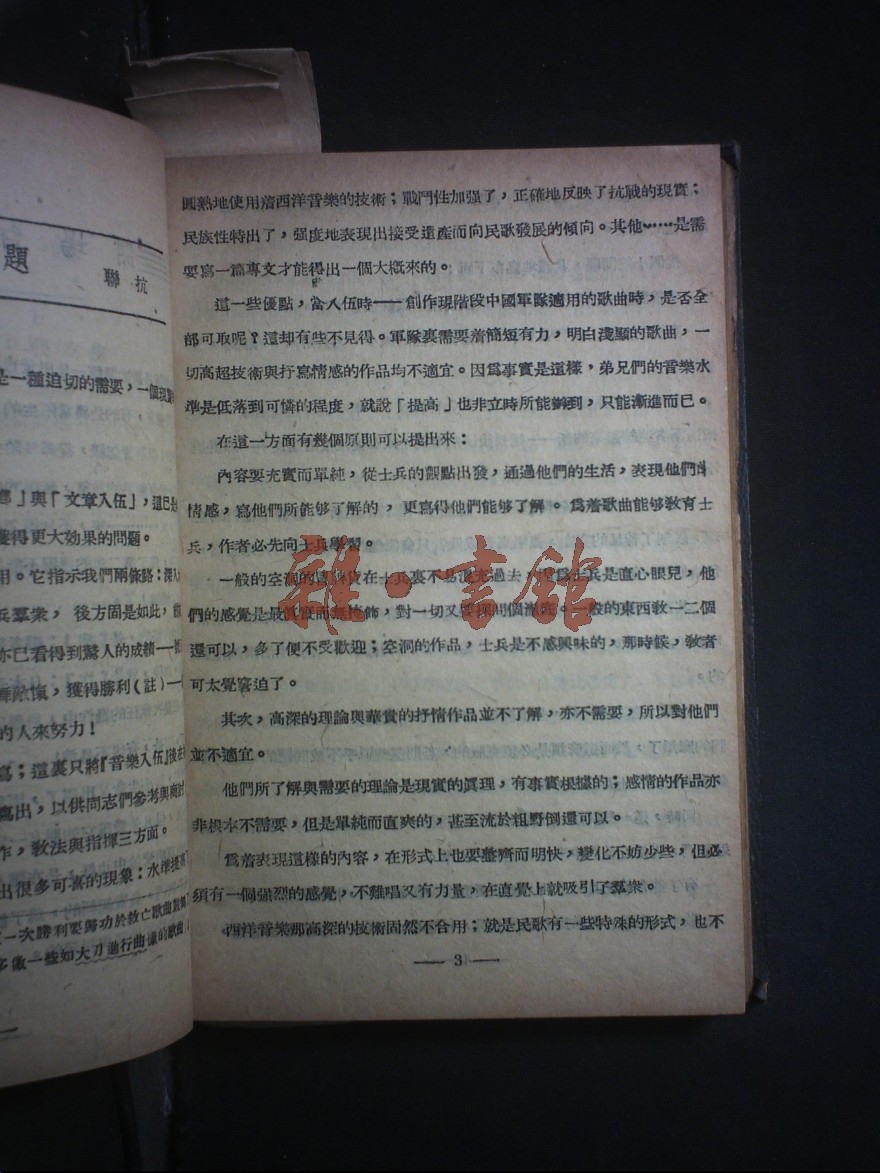 題
抗聯
是一種迫切的需要，一個現
」與「文章入伍」，這已是
獲得更大效果的問題。
用。它指示我們兩條路：深入
兵羣衆，後方固是如此，
亦已看得到驚人的成績—
獲得勝利（註）—
的人來努力！
寫；這裏只將『音樂入伍』後
寫出，以供同志們參考與商討
作，敎法與指揮三方面。
出很多可喜的現象：水準提
一次勝利要歸功於救亡歌曲
多做一些如大刀進行曲的歌曲
圓熟地使用着西洋音樂的技術；戰鬥性加强了，正確地反映了抗戰的現實；
民族性特出了，强度地表現出接受遺產而向民歌發展的傾向。其他……是需
要寫一篇專文才能得出一個大概來的。
這一些優點，當入伍時——創作現階段中國軍隊適用的歌曲時，是否全
部可取呢？這却有些不見得。軍隊裏需要着簡短有力，明白淺顯的歌曲，一
切高超技術與抒寫情感的作品均不適宜。因爲事實是這樣，弟兄們的音樂水
準是低落到可憐的程度，就說「提高」也非立時所能夠到，只能漸進而已。
在這一方面有幾個原則可以提出來：
內容要充實而單純，從士兵的觀點出發，通過他們的生活，表現他們的
情感，寫他們所能够了解的，更寫得他們能够了解。爲着歌曲能够敎育士
兵，作者必先向士兵學習。
一般的空洞的宣傳貨在士兵裏不易混充過去，因爲士兵是直心眼兒，他
們的感覺是最眞實而無掩飾，對一切又要求問個澈底。一般的東西敎一二個
還可以，多了便不受歡迎；空洞的作品，士兵是不感興味的，那時候，敎者
可太覺窘迫了。
其次，高深的理論與華貴的抒情作品並不了解，亦不需要，所以對他們
並不適宜。
他們所了解與需要的理論是現實的眞理，有事實根據的；感情的作品亦
非根本不需要，但是單純而直爽的，甚至流於粗野倒還可以。
爲着表現這樣的內容，在形式上也要整齊而明快，變化不妨少些，但必
須有一個强烈的感覺，不難唱又有力量，在直覺上就吸引了羣衆。
西洋音樂那高深的技術固然不合用；就是民歌有一些特殊的形式，也不
— 3 —
雜·書館